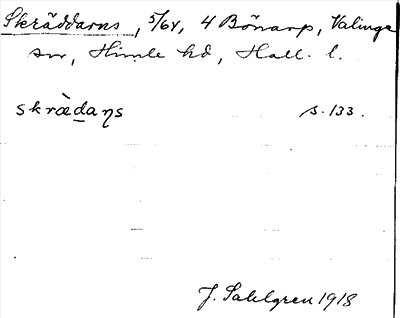 Skräddarns, 5/64, 4 Bönarp, Valinge
sn, Himle hd, Hall. l.
skræ̀daṇs s. 133.
J. Sahlgren 1918